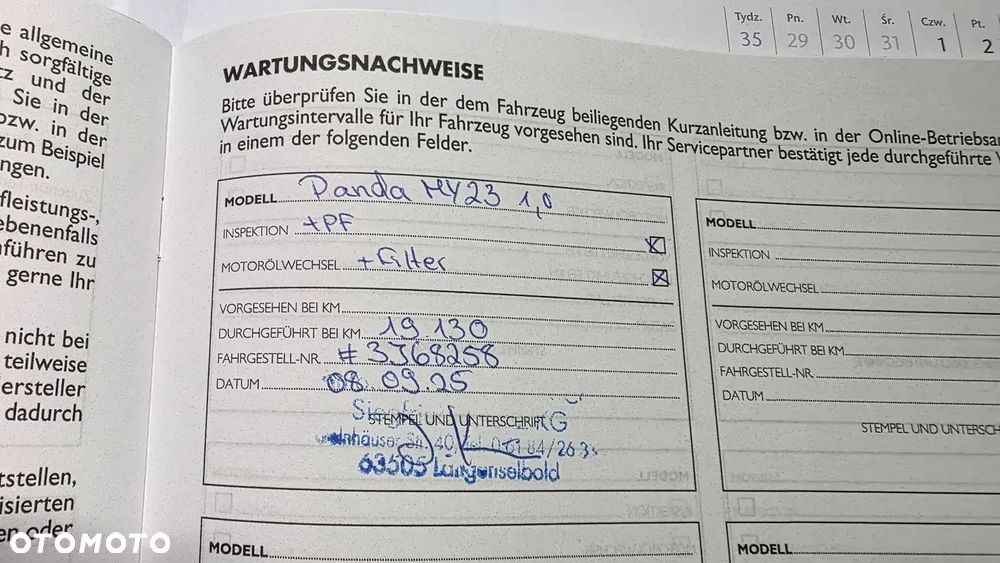 Tydz. Pn. Wt. Śr. Czw. Pt.
35 29 30 31 1 2
e allgemeine
h sorgfältige
tz und der
Sie in der
bzw. in der
zum Beispiel
ngen.
fleistungs-,
ebenenfalls
führen zu
gerne Ihr
nicht bei
teilweise
ersteller
dadurch
tstellen,
isierten
en oder
WARTUNGSNACHWEISE
Bitte überprüfen Sie in der dem Fahrzeug beiliegenden Kurzanleitung bzw. in der Online-Betriebsa
Wartungsintervalle für Ihr Fahrzeug vorgesehen sind. Ihr Servicepartner bestätigt jede durchgeführte
in einem der folgenden Felder.
MODELL Panda MY23 1,0
INSPEKTION +PF
MOTORÖLWECHSEL +Filter
VORGESEHEN BEI KM
DURCHGEFÜHRT BEI KM 19 130
FAHRGESTELL-NR. # 3J68258
DATUM 08.09.25
STEMPEL UND UNTERSCHRIFT
63505 Langenselbold
MODELL
INSPEKTION
MOTORÖLWECHSEL
VORGESEHEN BEI KM
DURCHGEFÜHRT BEI KM
FAHRGESTELL-NR.
DATUM
STEMPEL UND UNTERSCH
MODELL
MODELL
OTOMOTO